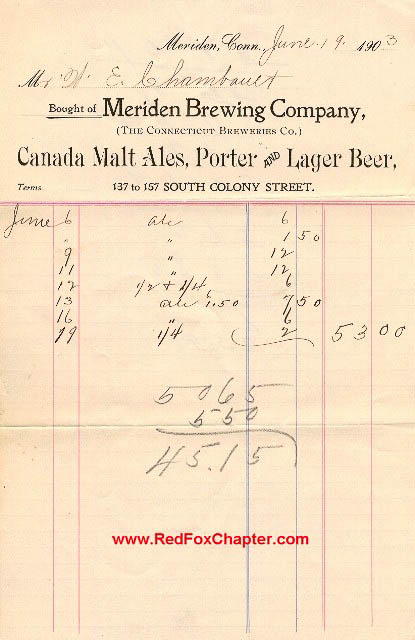 Meriden, Conn., June 19 1903
Mr W. E. Chambault
Bought of Meriden Brewing Company,
(THE CONNECTICUT BREWERIES CO.)
Canada Malt Ales, Porter AND Lager Beer,
Terms 137 to 157 SOUTH COLONY STREET.
June 6 ale 6
" " 1 50
9 " 12
11 " 12
12 1/2 + 1/4 6
13 ale 1.50 7 50
16 " 6
19 1/4 2 53 00
5065
550
45.15
www.RedFoxChapter.com